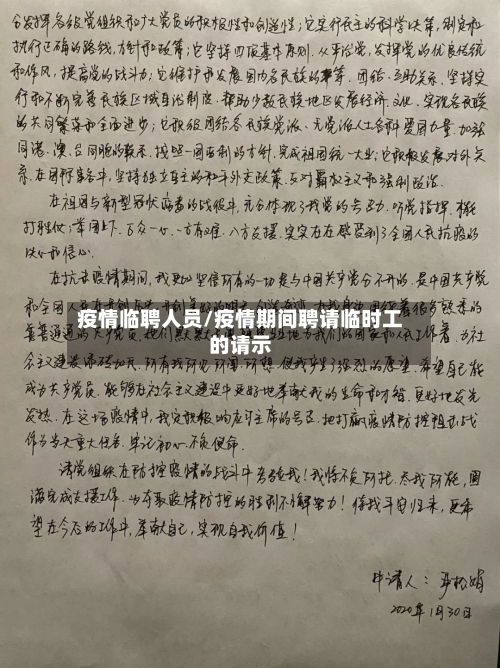 分发挥各级党组织和广大党员的积极性和创造性；它实行民主的科学决策，制定和
执行正确的路线、方针和政策；它坚持四项基本原则，从严治党，发挥党的优良传统
和作风，提高党的战斗力；它维护和发展国内各民族的平等、团结、互助关系，坚持实
行和不断完善民族区域自治制度，帮助少数民族地区发展经济、文化，实现各民族
的共同繁荣和全面进步；它积极团结各民族党派、无党派人士各种爱国力量，加强
同港、澳、台同胞的联系，按照一国两制的方针，完成祖国统一大业；它积极发展对外关
系，在国际事务中，坚持独立自主的和平外交政策，反对霸权主义和强制政治。
在祖国与新型冠状病毒的战役中，充分体现了我党的号召力，听党指挥，能
打胜仗；举国上下，万众一心，一方有难，八方支援，实实在在感受到了全国人民抗疫的
决心和信心。
在抗击疫情期间，我更加坚信所有的一切是与中国共产党分不开的，是中国共产党
和全国人民
疫情临聘人员/疫情期间聘请临时工
的请示
会主义建设添砖加瓦，所有我所见所闻所想，使我产生了强烈的愿望，希望自己能
成为共产党员，能够在社会主义建设中更好地奉献我的生命和才智，更好地发光
发热。在这场疫情中，我定积极响应习主席的号召，把打赢疫情防控阻击战
作为当前重大任务，牢记初心，不负使命。
请党组织在防控疫情的战斗中考验我！我将不负所托，尽我所能，圆
满完成支援工作，为夺取疫情防控的胜利不懈努力！待我平安归来，更希
望在今后的工作中，奉献自己，实现自我价值！
申请人：
2020年1月30日